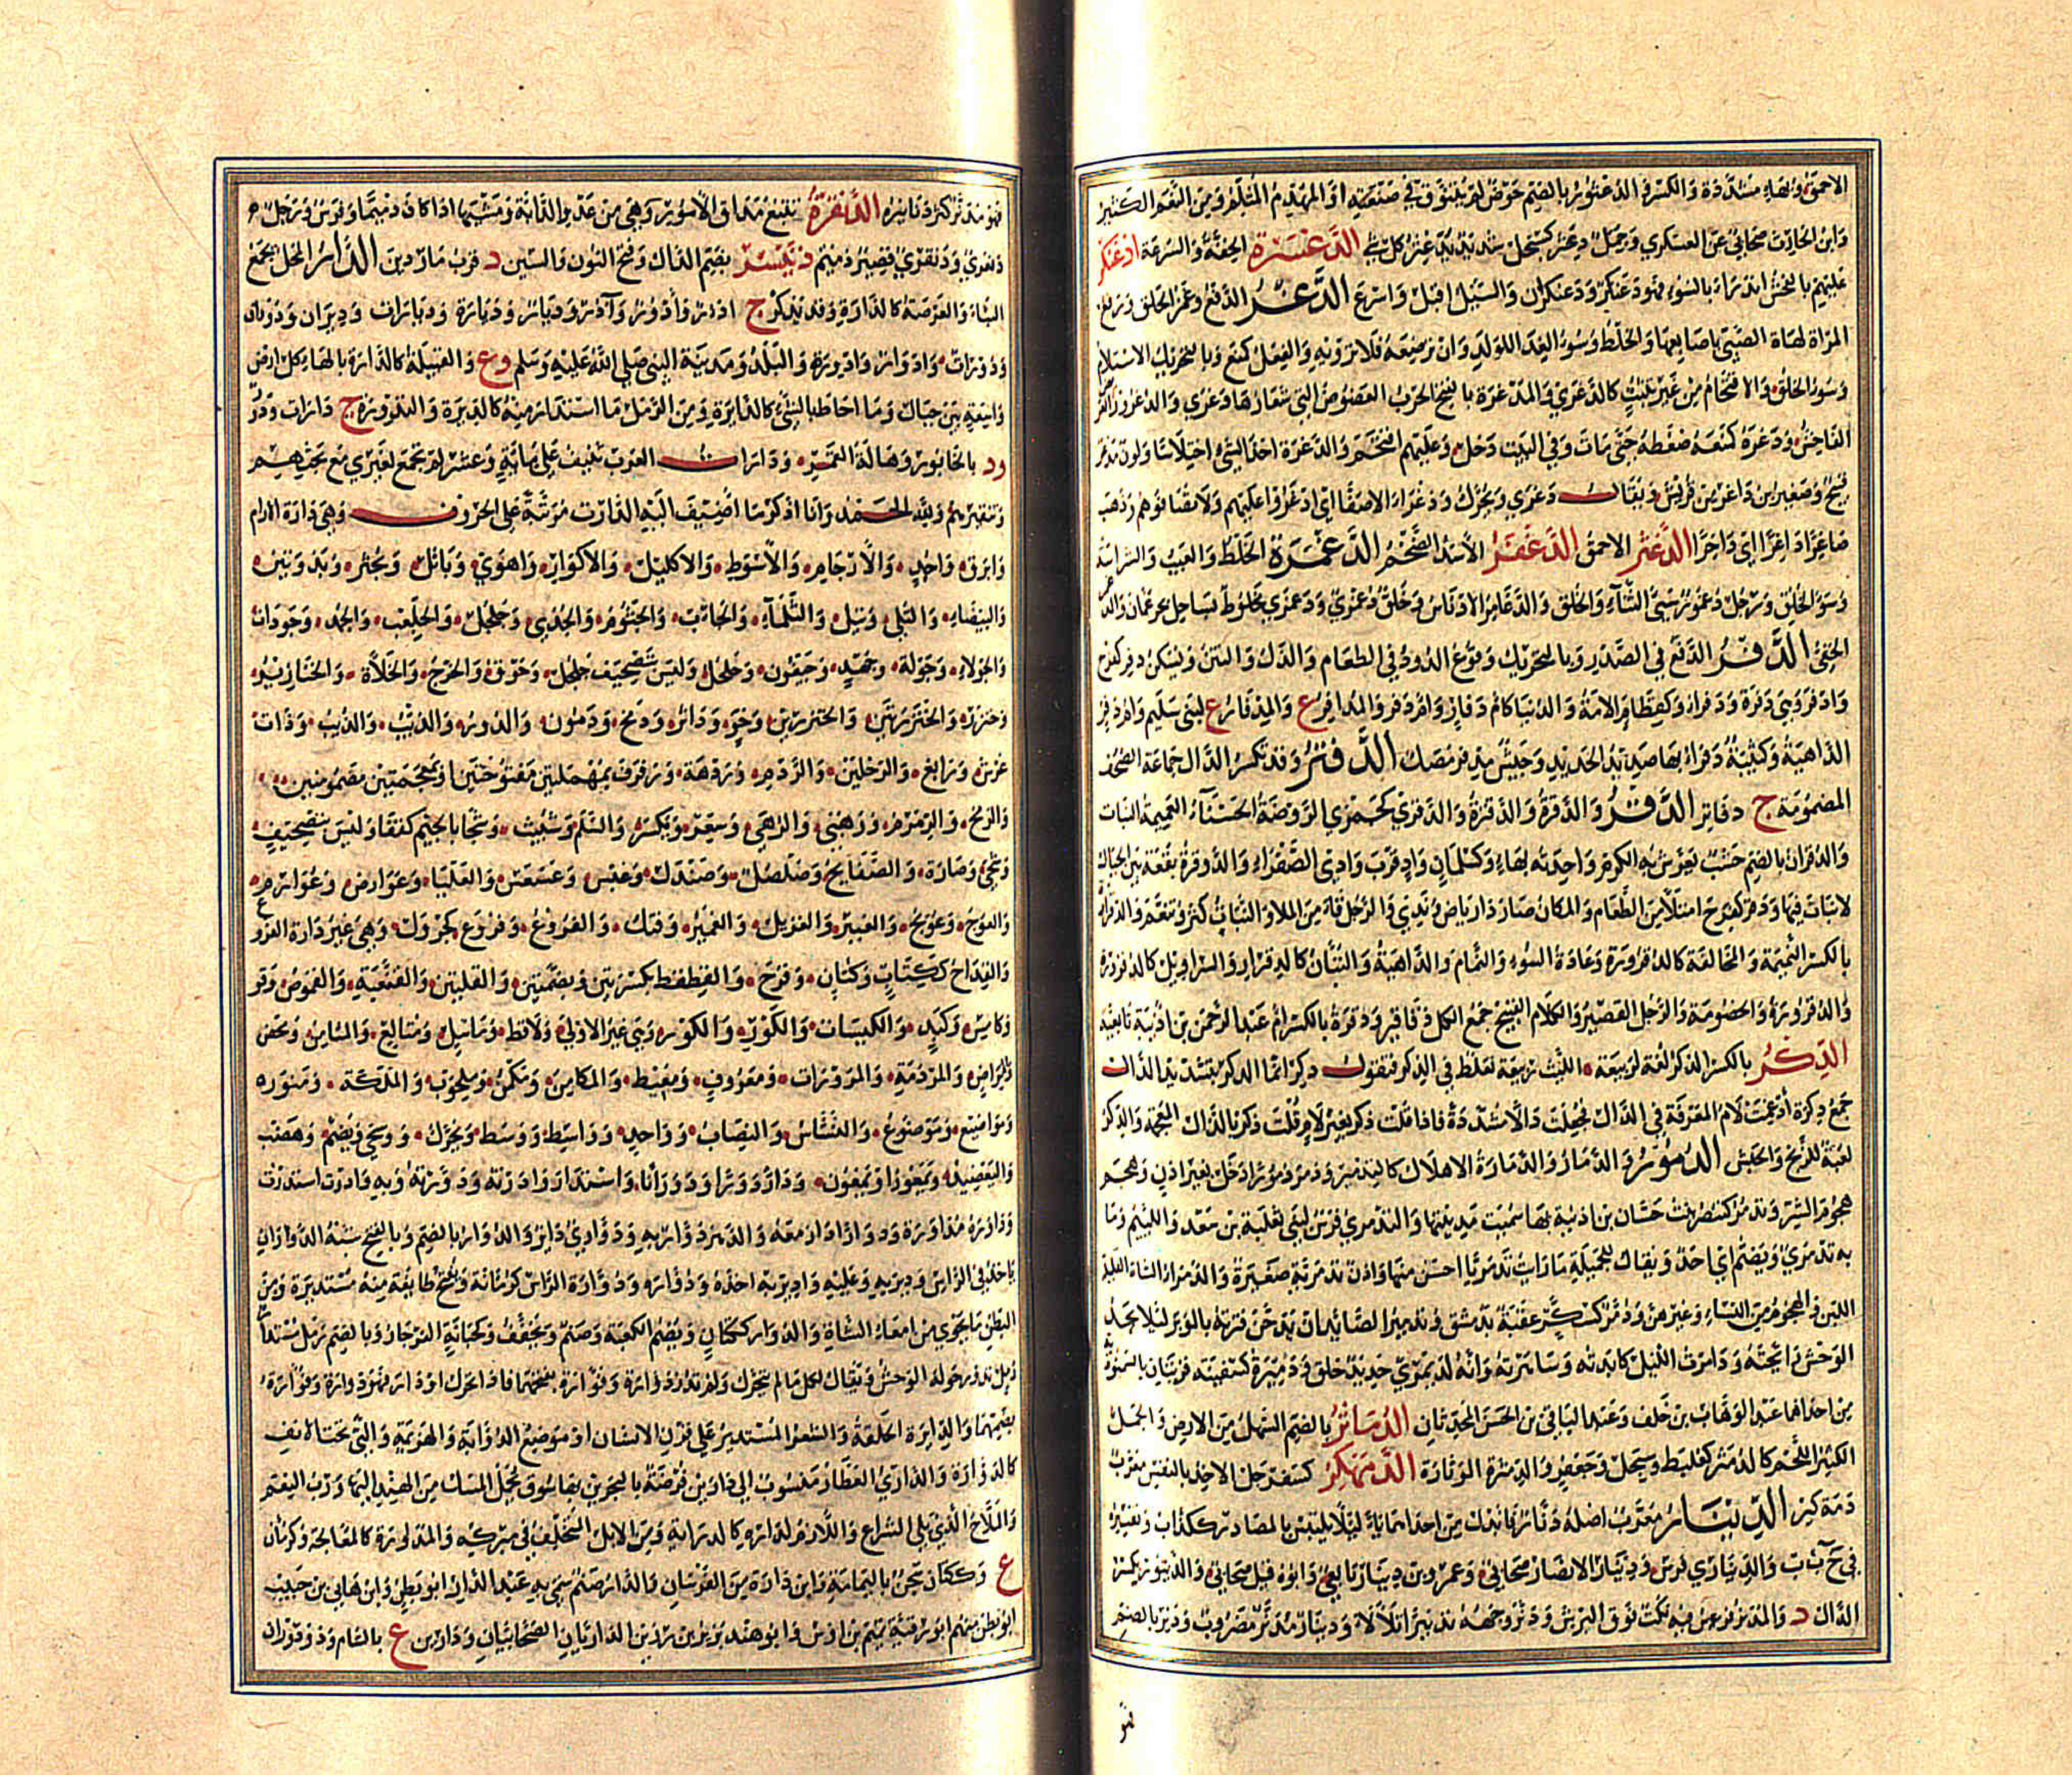 الاحمق وبالهاء مشددة والكسر والدعثور بالضم حوض لم يتنوق في صنعته او المهدم المثلم ومن النعم الكثير
وابن الحارث صحابي عن العسكري ورجل دعثر كسبحل شديد يدعثر كل شيء الدعسرة الخفة والسرعة ادعنكر
عليهم بالفحش اندرأ بالسوء فهو دعنكر ودعنكران والسيل اقبل واسرع الدغر الدفع وغمز الحلق ورفع
المرأة لهاة الصبي باصابعها والخلط وسوء الغذاء للولد وان ترضعه فلا ترويه والفعل كمنع وبالتحريك الاستلام
وسوء الخلق والاقتحام من غير تثبت كالدغرى والمدغرة بالفتح الحرب العضوض التي شعارها دغرى
الفاحش ودغره كمنعه ضغطه حتى مات وفي البيت دخل وعليهم اقتحم والدغرة اخذ الشيء اختلاسا ولون مدغر
قبيح وصغير بن داغر من قريش ويقال دغرى ويحرك ودغراء لا صفى اي ادغروا عليهم ولا تصافوهم وذهب
صاغرا داغرا اي داخرا الدغثر الاحمق الدغفر الاسد الضخم الدغمرة الخلط والعيب والشراسة
وسوء الخلق ورجل دغمور سيئ الثناء والخلق والدغامر الادناس وخلق دغمري ودغمري مخلوط بساحل بحر عمان
الخفي الدفر الدفع في الصدر وبالتحريك وقوع الدود في الطعام والذل والنتن ويسكن دفر كفرح
وادفر وهي دفرة ودفراء وكقطام الامة والدنيا كام دفار وام دفر والمدافر ع والمدفار ع لبني سليم وام دفر
الداهية وكتيبة دفراء بها صدأ الحديد وجيش مدفر مصك الدفتر وقد تكسر الدال جماعة الصحف
المضمومة ج دفاتر الدقر والدقرة والدقيرة والدقرى كجمزى الروضة الحسناء العميمة النبات
والدقران بالضم خشب يعرش به الكرم واحدته بهاء وكسلمان واد قرب وادي الصفراء والدوقرة بقعة بين الجبال
لا نبات فيها ودقر كفرح امتلأ من الطعام والمكان صار ذا رياض وندي والرجل قاء من الملء والنبات كثر وتنعم والدقرارة
بالكسر النميمة والمخالفة كالدقرورة وعادة السوء والنمام والداهية والتبان كالدقرار والسراويل كالدقرورة
والدقرورة والخصومة والرجل القصير والكلام القبيح جمع الكل دقاقير ودقرة بالكسر ام عبد الرحمن بن اذينة تابعية
الدكر بالكسر الذكر لغة لربيعة الليث ربيعة تغلط في الذكر فتقول دكر انما الدكر بتشديد الدال
جمع دكرة ادغمت لام المعرفة في الدال فجعلت دالا مشددة فاذا قلت دكر بغير لام قلت ذكر بالذال المعجمة والدكر
لعبة للزنج والحبش الدمور والدمار والدمارة الاهلاك كالتدمير ودمر دمورا دخل بغير اذن وهجم
هجوم الشر وتدمر كتنصر بنت حسان بن اذينة بها سميت مدينتها والتدمري فرس لبني ثعلبة بن سعد واللئيم وما
به تدمري ويضم اي احد ويقال للجميلة ما رأيت تدمريا احسن منها واذن تدمرية صغيرة والدمراء الشاة القليلة
اللبن والهجوم من النساء وغيرهن ودمر كسكر عقبة بدمشق وتدمير الصائد ان يدخن قترته بالوبر لئلا يجد
الوحش رائحته ودامرت الليل كابدته وسامرته وانه لديموري حديد علق ودميرة كسفينة قريتان بالسمنودية
من احداهما عبد الوهاب بن خلف وعبد الباقي بن الحسن المحدثان الدماثر بالضم السهل من الارض والجمل
الكثير اللحم كالدمثر كعلبط وسبحل وجعفر والدمثرة الوثارة الدمهكر كسفرجل الاخذ بالنفس معرب
دمه كير الدينار معرب اصله دنار فابدل من احداهما ياء لئلا يلتبس بالمصادر ككذاب وتفسيره
في ح ب ب والديناري فرس ودينار الانصار صحابي وعمرو بن دينار تابعي وابوه قيل صحابي والدينور بكسر
الدال د والمدنر فرس فيه نكت فوق البرش ودنر وجهه تدنيرا تلألأ ودينار مدنر مضروب ودنر بالضم
فهو
فهو مدنر كثر دنانيره الدنقرة تتبع مداق الامور وهي من عدو الدابة ومشيها اذا كان دميما وفرس ورجل
دنقري ودنقري قصير دميم دنيسر بضم الدال وفتح النون والسين د قرب ماردين الدار المحل يجمع
البناء والعرصة كالدارة وقد تذكر ج ادور وادؤر وآدر وديار وديارة وديارات وديران ودوران
ودورات وادوار وادورة والبلد ومدينة النبي صلى الله عليه وسلم وع والقبيلة كالدارة وبالهاء كل ارض
واسعة بين جبال وما احاط بالشيء كالدائرة ومن الرمل ما استدار منه كالديرة والتدورة ج دارات ودور
ود بالخابور وهالة القمر ودارات العرب تنيف على مائة وعشر لم تجتمع لغيري مع بحثهم
وتنقيرهم ولله الحمد وانا اذكر ما اضيف اليه الدارات مرتبة على الحروف وهي دارة الآرام
وابرق واحد والارحام والاسواط والاكليل والاكوار واهوى وباسل وبحثر وبدوتين
والبيضاء والتلى وتيل والثلماء والجأب والجثوم والجدي وجلجل والجلعب والجمد وجودات
والجولاء وجولة وجهد وجيفون وحلحل وليس بتصحيف جلجل وحوق والخرج والخلاءة والخنازير
وخنزر والخنزرتين والخنزرين وخو وداثر ودمخ ودمون والدور والذئب والذؤيب وذات
عرش ورابغ والرجلين والردم وردهة ورفرف بمهملتين مفتوحتين او بمعجمتين مضمومتين
والرمح والرمرم ورهبى والرهى وسعر ويكسر والسلم وشبيث وشجا بالجيم كقفا وليس بتصحيف
وشحي وصارة والصفائح وصلصل وصندل وعبس وعسعس والعلياء وعوارض وعوارم
والعوج وعويج والغبير والغزيل والغمير وفتك والفروع وفروع كجرول وهي غير دارة الفروع
والقداح ككتاب وكتان وقزح والقطقط بكسرتين وبضمتين والقلتين والقنعبة والقموص وقو
وكامس وكبد والكبسات والكور والكور وهي غير الاولى ولاقط وماسل ومتالع والمثامن ومحصن
والمراض والمردمة والمرورات ومعروف ومعيط والمكامن ومكمن وملحوب والملكة ومنور
ومواضيع وموضوع والنشاش والنصاب وواحد وواسط ووسط ويحرك ووشجى ويضم وهضب
واليعضيد ويمعون او يمغون ودار دورا ودورانا واستدار وادرته ودورته وبه وادرت استدرت
وداوره مداورة ودوارا دار معه والدهر دوار به ودواري دائر والدوار بالضم وبالفتح شبه الدوران
يأخذ في الرأس ودير به وعليه وادير به اخذه ودوارة الرأس كرمانة ويفتح طائفة منه مستديرة ومن
البطن ما تحوى من امعاء الشاة والدوار ككتان ويضم الكعبة وصنم ويخفف وكجبانة الفرجار وبالضم رمل مستدار
رمل تدور حوله الوحش ويقال لكل ما لم يتحرك ولم يدر دوارة وفوارة بفتحهما فاذا تحرك او دار فهو دوارة وفوارة
بضمهما والدائرة الحلقة والشعر المستدير على قرن الانسان او موضع الذؤابة والهزيمة والتي تحت الانف
كالدوارة والداري العطار منسوب الى دارين فرضة بالبحرين بها سوق يحمل المسك من الهند اليها ورب النعم
والملاح الذي يلي الشراع واللازم لداره كالدارية ومن الابل المتخلف في مبركه والمداورة كالمعالجة وكرمان
ع وككتان سجن باليمامة وابن دارة من الفرسان والدار صنم سمي به عبد الدار ابو بطن وابن هانئ بن حبيب
ابو بطن منهم ابو رقية تميم بن اوس وابو هند بربر بن رزين الداريان الصحابيان ودارين ع بالشام وذو دوران